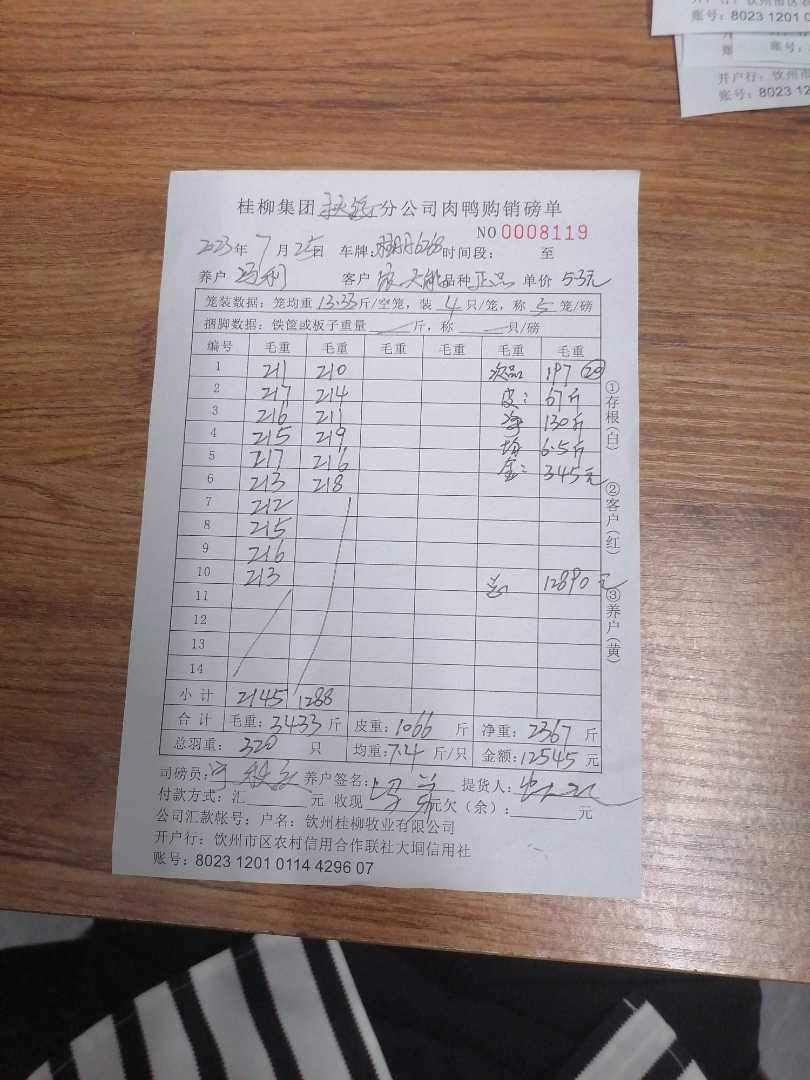 账号：8023 1201 0
开户行：钦州市
账号：8023 12
桂柳集团 分公司肉鸭购销磅单
NO 0008119
2023年 7月25日 车牌： 6268 时间段： 至
养户 冯利 客户 天能 品种 正品 单价 5.3元
笼装数据：笼均重 13.33斤/空笼，装 4 只/笼，称 5 笼/磅
捆脚数据：铁筐或板子重量 斤，称 只/磅
编号 毛重 毛重 毛重 毛重 毛重 毛重
1 211 210 次品 197 20
2 217 214 皮： 67斤
3 216 211 净 130斤
4 215 219 均 6.5斤
5 217 216 金： 345元
6 213 218
7 212
8 215
9 216
10 213 总 12890元
11
12
13
14
小计 2145 1288
合计 毛重：3433斤 皮重：1066 斤 净重：2367斤
总羽重：320 只 均重：7.4斤/只 金额：12545元
①存根（白）
②客户（红）
③养户（黄）
司磅员： 养户签名： 提货人：
付款方式：汇 元 收现 元欠（余）： 元
公司汇款帐号：户名：钦州桂柳牧业有限公司
开户行：钦州市区农村信用合作联社大垌信用社
账号：8023 1201 0114 4296 07